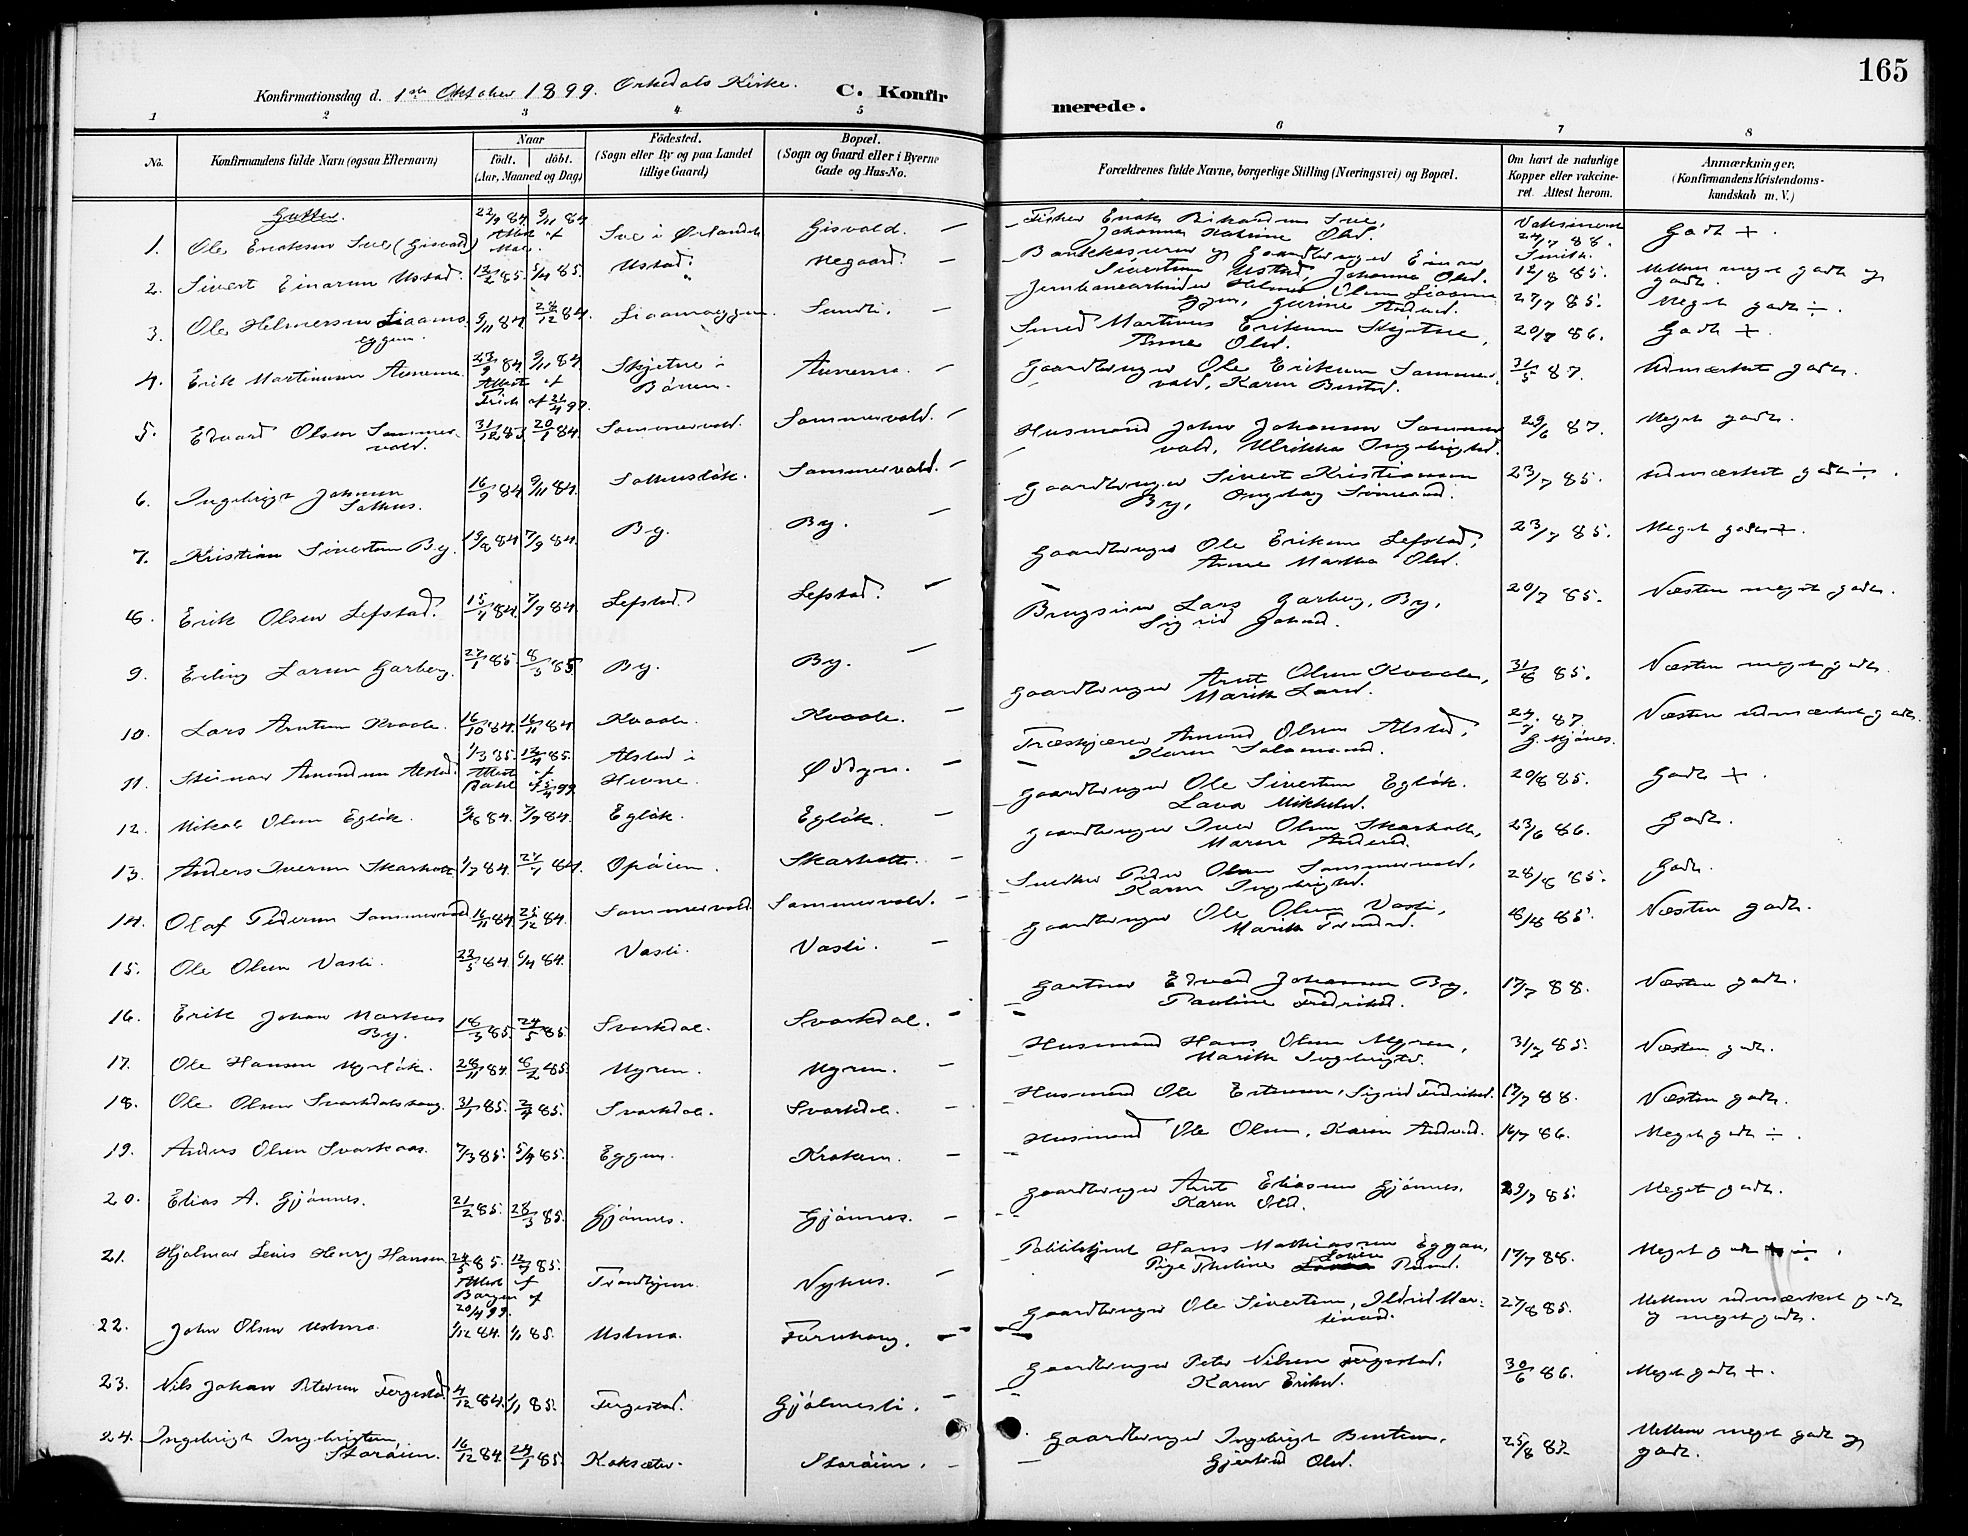 165
Konfirmationsdag d. 1ste Oktober 1899. Orkedals Kirke. C. Konfir merede.
1 2 3 4 5 6 7 8
No. Konfirmandens fulde Navn (ogsaa Efternavn) Naar født. døbt. (Aar, Maaned og Dag) Fødested. (Sogn eller By og paa Landet tillige Gaard) Bopæl. (Sogn og Gaard eller i Byerne Gade og Hus-No. Forældrenes fulde Navne, borgerlige Stilling (Næringsvei) og Bopæl. Om havt de naturlige Kopper eller vakcineret. Attest herom. Anmærkninger. (Konfirmandens Kristendomskundskab m. V.)
Gutter.
1. Ole Eriksen Sve (Gisvold) 22/9 84 9/11 84 Sve i Ørlandet Gisvold. — Fisker Erik Rikardsen Sve, Johanna Katrine Olsd. 24/7 88. Godt +.
2. Sivert Einarsen Ustad. 12/2 85. 5/4 85. Ustad. Megaard. — Bankkasserer og Gaardbruger Einar Sivertsen Ustad, Johanna Olsd. 12/8 85. Mellem meget godt og godt.
3. Ole Helmersen Liaamoeggen. 9/11 84 26/12 84. Liaamoeggen. Sundli. — Jernbanearbeider Helmer Olsen Liaamoeggen, Gurine Andersd. 27/7 85. Meget godt ÷.
4. Erik Martinusen Aunemo 23/9 84 9/11 84 Skjetne i Børsen. Aunemo. — Smed Martinus Eriksen Skjetne, Anne Olsd. 20/7 86. Godt +.
5. Edvard Olsen Sommervold. 31/12 83 20/1 84. Sommervold. Sommervold. — Gaardbruger Ole Eriksen Sommervold, Karen Bentsd. 31/5 87. Udmærket godt.
6. Ingebrigt Johnsen Solhus. 16/9 84 9/11 84. Solhusløk. Sommervold. — Husmand John Johansen Sommervold, Ulrikka Ingebrigtsd. 29/6 87. Meget godt.
7. Kristian Sivertsen By. 13/8 84 7/9 84. By. By. — Gaardbruger Sivert Kristiansen By, Ingebor Simensd. 23/7 85. Udmærket godt ÷.
8. Erik Olsen Lefstad. 15/7 84. 7/9 84. Lefstad. Lefstad. — Gaardbruger Ole Eriksen Lefstad, Anne Martha Olsd. 23/7 85. Meget godt +.
9. Erling Larsen Garberg. 27/1 85. 8/3 85 By. By. — Brugseier Lars Garberg, By, Sigrid Johnsd. 20/7 85. Næsten meget godt.
10. Lars Arntsen Kvaale. 16/10 84. 16/11 84. Kvaale. Kvaale. — Gaardbruger Arnt Olsen Kvaale, Marith Larsd. 31/8 85. Næsten meget godt.
11. Steinar Amundsen Alstad. 1/3 85. 12/4 85. Alstad i Hevne. Ødegn. — Træskjærer Amund Olsen Alstad, Karen Salamonsd. 24/7 87. G. Mjønes. Næsten udmærket godt.
12. Mikal Olsen Egløk. 9/8 84. 7/9 84. Egløk. Egløk. — Gaardbruger Ole Sivertsen Egløk. Lava Mikkelsd. 20/8 85. Godt +.
13. Anders Iversen Skarholt 1/7 84. 27/7 84. Opøien. Skarholt. — Gaardbruger Iver Olsen Skarholt, Maren Andersd. 23/6 86. Godt.
14. Olaf Pedersen Sommervold 16/11 84 25/12 84. Sommervold. Sommervold. — Snedker Peder Olsen Sommervold, Karen Ingebrigtsd. 28/8 85. Godt.
15. Ole Olsen Vasli. 22/3 84. 6/4 84. Vasli. Vasli. — Gaardbruger Ole Olsen Vasli, Marith Trondsd. 18/8 85. Næsten godt.
16. Erik Johan Markus By. 18/3 85. 24/5 85. Svorkdal. Svorkdal. — Gartner Edvard Johansen By, Pauline Fredriksd. 17/7 88. Næsten godt.
17. Ole Hansen Myrløk. 28/11 84. 8/2 85. Myren. Myren. — Husmand Hans Olsen Myren, Marith Ingebrigtsd. 31/7 85. Næsten godt.
18. Ole Olsen Svorkdalshaug. 31/1 85. 2/4 85. Svorkdal. Svorkdal. — Husmand Ole Estensen, Sigrid Fredriksd. 17/7 88. Næsten godt.
19. Anders Olsen Svorkaas. 7/3 85. 5/4 85. Eggen. Krokem. — Husmand Ole Olsen, Karen Andersd. 16/7 86. Meget godt ÷.
20. Elias A. Gjønnes. 21/2 85. 28/3 85. Gjønnes. Gjønnes. — Gaardbruger Arnt Eliasen Gjønnes, Karen Olsd. 29/7 85. Meget godt.
21. Hjalmar Leuis Henry Hansen 24/5 85. 12/7 85. Trondhjem. Nyhus. — Hans Mathiasen Eggan, Pige Tholine Lovise 17/7 88. Meget godt ÷.
20/4 99.
22. John Olsen Ustmo. 1/12 84. 1/1 85. Ustmo. Furuhaug. — Gaardbruger Ole Sivertsen, Ildrid Martinusd. 27/8 85. Mellem udmærket godt og meget godt.
23. Nils Johan Petersen Fergestad 4/12 84. 1/1 85. Fergestad. Gjølmesli. — Gaardbruger Peter Nilsen Fergestad, Karen Eriksd. 30/6 86. Meget godt +.
24. Ingebrigt Ingebrigtsen Storøien. 16/12 84. 24/1 85. Koksæter. Storøien. — Gaardbruger Ingebrigt Bentsen, Gjertrud Olsd. 25/8 87. Mellem meget godt og godt.